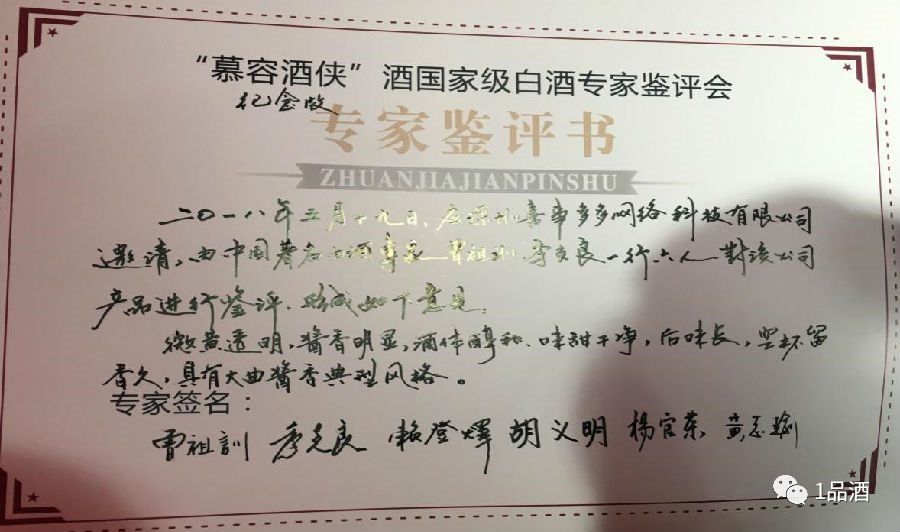 “慕容酒侠”酒国家级白酒专家鉴评会
纪念版
专家鉴评书
ZHUANJIAJIANPINSHU
二〇一八年五月十九日，应深圳喜事多多网络科技有限公司
邀请，由中国著名白酒专家曾祖训、李克良一行六人對该公司
产品进行鉴评，形成如下意见：
微黄透明，酱香明显，酒体醇和，味甜干净，后味长，空杯留
香久，具有大曲酱香典型风格。
专家签名：
曾祖訓 李克良 賴登燡 胡义明 楊官荣 黄志瑜
1品酒